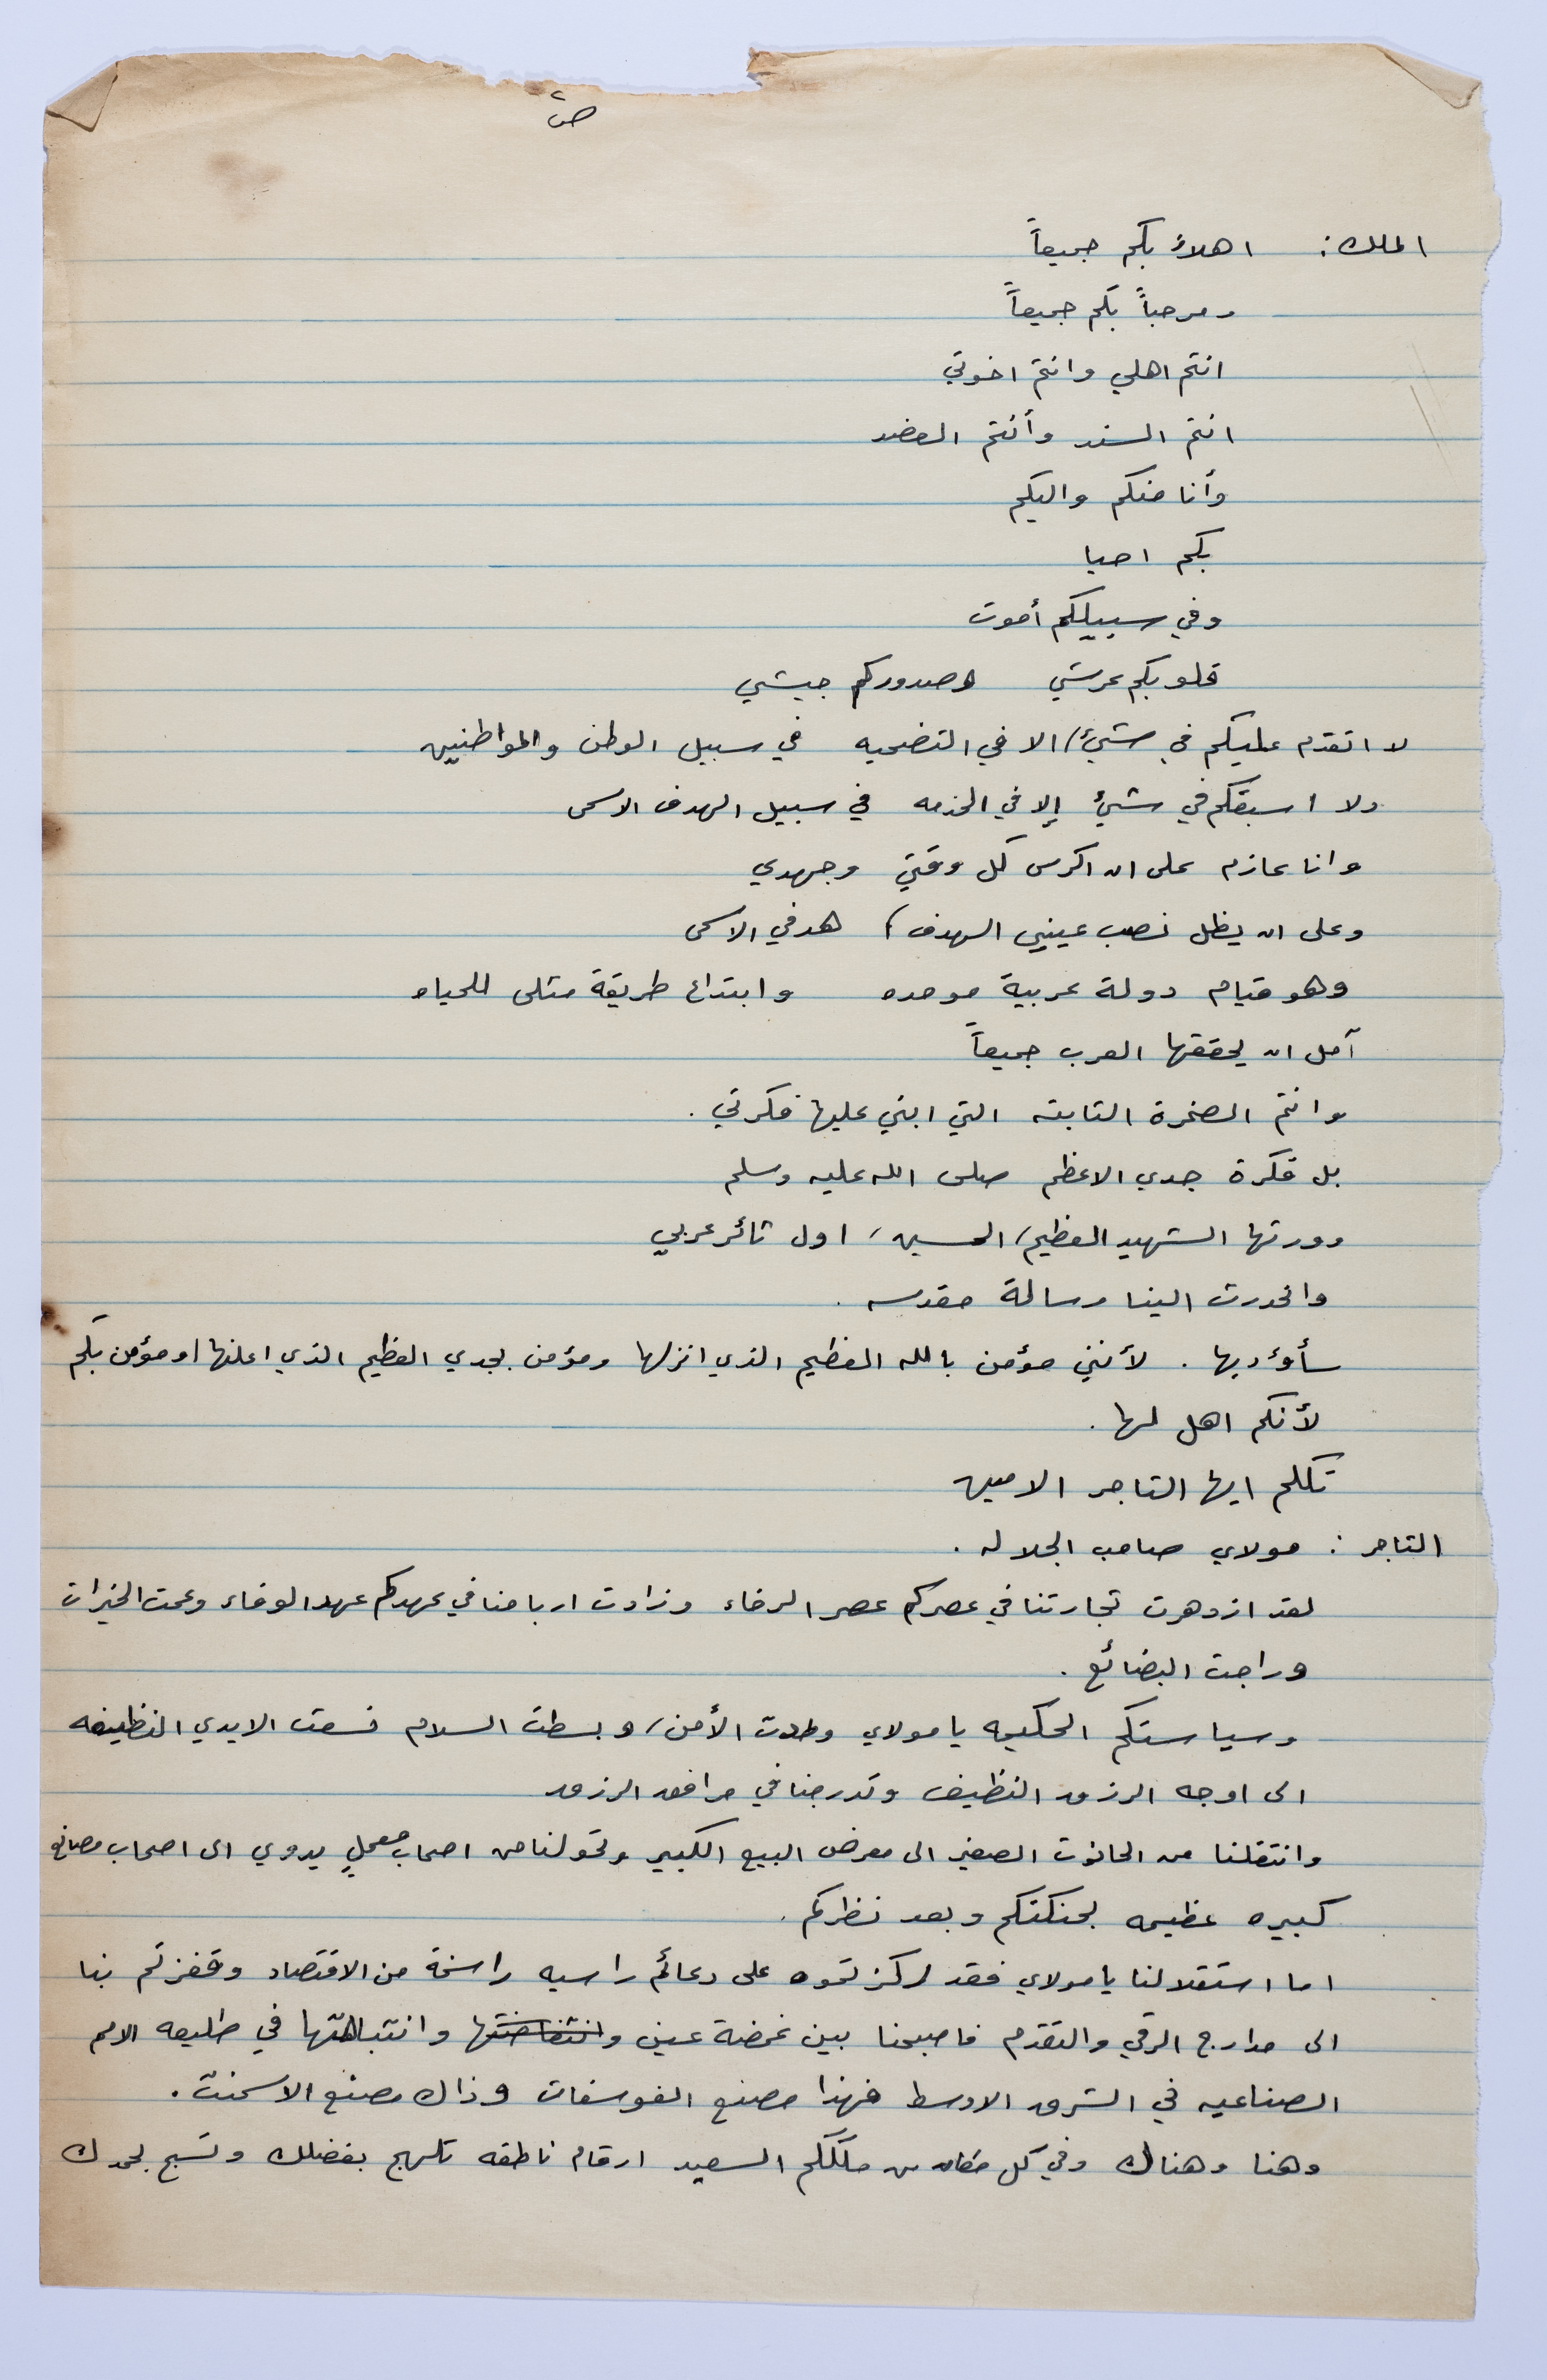 ص٢
الملك: اهلاً بكم جميعاً
ومرحباً بكم جميعاً
انتم اهلي وانتم اخوتي
انتم السند وأنتم العضد
وأنا منكم واليكم
بكم احيا
وفي سبيلكم أموت
قلوبكم عرشي وصدوركم جيشي
لا اتقدم عليكم في شيئ، الا في التضحيه في سبيل الوطن والمواطنين
ولا اسبقكم في شيئ إلا في الخدمه في سبيل الهدف الاسمى
وانا عازم على ان اكرس كل وقتي وجهدي
وعلى ان يظل نصب عيني الهدف، هدفي الاسمى
وهو قيام دولة عربية موحده وابتداع طريقة مثلى للحياه
آمل ان يحققها العرب جميعاً
وانتم الصخرة الثابته التي ابني عليها فكرتي.
بل فكرة جدي الاعظم صلى الله عليه وسلم
وورثها الشهيد العظيم، الحسين، اول ثائر عربي
وانحدرت الينا رسالة مقدسه.
سأؤديها. لأنني مؤمن بالله العظيم الذي انزلها ومؤمن بجدي العظيم الذي اعلنها، ومؤمن بكم
لأنكم اهل لها.
تكلم ايها التاجر الامين
التاجر: مولاي صاحب الجلاله.
لقد ازدهرت تجارتنا في عصركم عصر الرخاء وزادت ارباحنا في عهدكم عهد الوفاء وعمت الخيرات
وراجت البضائع.
وسياستكم الحكيمه يا مولاي وطدت الأمن، وبسطت السلام فسعت الايدي النظيفه
الى اوجه الرزق النظيف وتدرجنا في مرافق الرزق
وانتقلنا من الحانوت الصغير الى معرض البيع الكبير وتحولنا من اصحاب معملٍ يدوي الى اصحاب مصانع
كبيره عظيمه بحنكتكم وبعد نظركم.
اما استقلالنا يا مولاي فقد ركزتموه على دعائم راسيه راسخة من الاقتصاد وقفزتم بنا
الى مدارج الرقي والتقدم فاصبحنا بين غمضة عين وانتفاضتها وانتباهتها في طليعه الامم
الصناعيه في الشرق الاوسط فهذا مصنع الفوسفات وذاك مصنع الاسمنت.
وهنا وهناك وفي كل مكان من ملككم السعيد ارقام ناطقه تلهج بفضلك وتسبح بحمدك